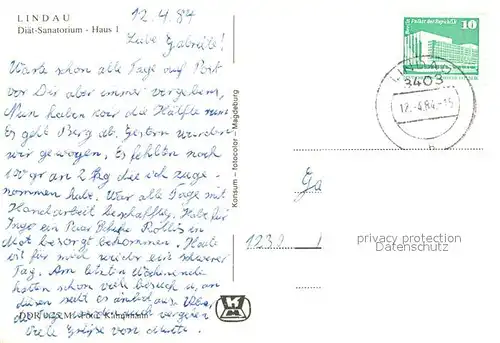 LINDAU
Diät-Sanatorium - Haus 1
12.4.84
Liebe Gabriele!
Warte schon alle Tage auf Post
von Dir aber immer vergebens,
Nun haben wir die Hälfte rum
Es geht Berg ab. Gestern wurden
wir gewogen, Es fehlten noch
100 gr an 2 kg die ich zuge-
nommen habe. War alle Tage mit
Handarbeit beschäftig. Habe für
Ingo ein Paar Rollis in
Mot besorgt bekommen. Heute
ist für mich wieder ein schwerer
Tag. Am letzten Wochenende
hatten schon viele besuch u, an
diesen sieht es ähnlich aus.
DDR 0,25 M Foto: Kampmann
Viele Grüße von Mutti.
Konsum - fotocolor - Magdeburg
Palast der Republik
10
LINDAU
3403
12.-4.84.-15
b
Ga
1232
privacy protection
Datenschutz